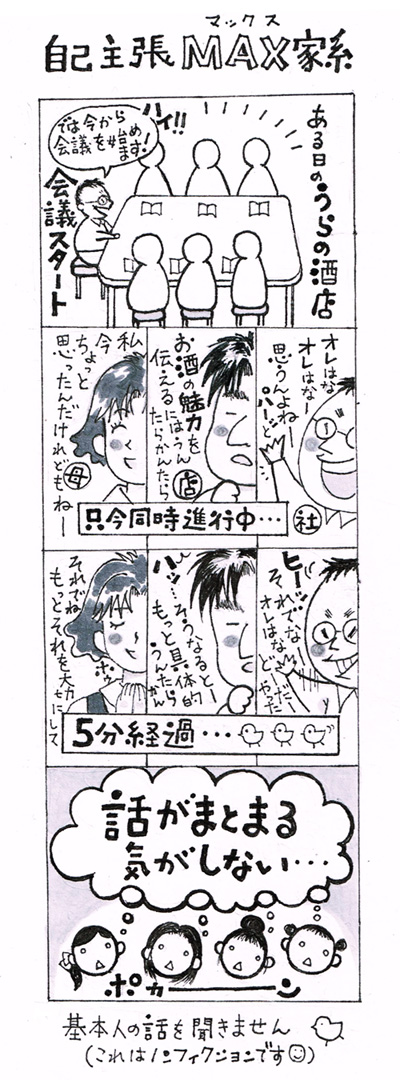 マックス
自己主張MAX家系
ある日の
うらの酒店
ハイ!!
では今から
会議を始め
ます!
会議スタート
オレはな
オレはなー
思うんよねー
パーッと
社
お酒の魅力を
伝えるにはうん
たらかんたら
店
私
今
ちょっと
思ったんだけれどもねー
母
只今同時進行中…
ヒーッ
それでなー
オレはな
どーだー
やった
ハッ…
そうなるとー
もっと具体的
うんたら
かん
それでね
もっとそれを大切にして
5分経過…
話がまとまる
気がしない…
ポカーーーン
基本人の話を聞きません
(これはノンフィクションです)